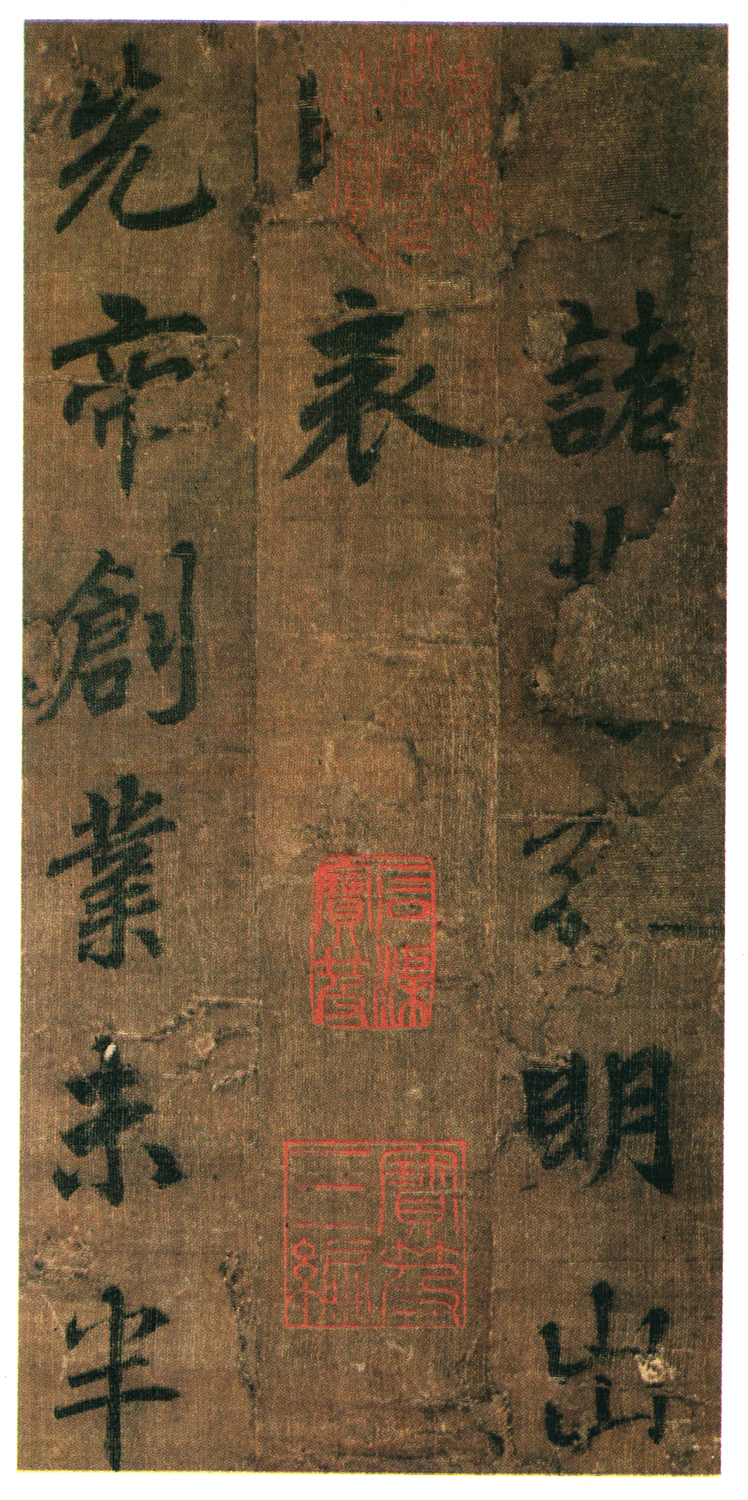 諸明出
表
先帝創業未半
嘉慶御覽之寶
石渠寶笈
寶笈三編